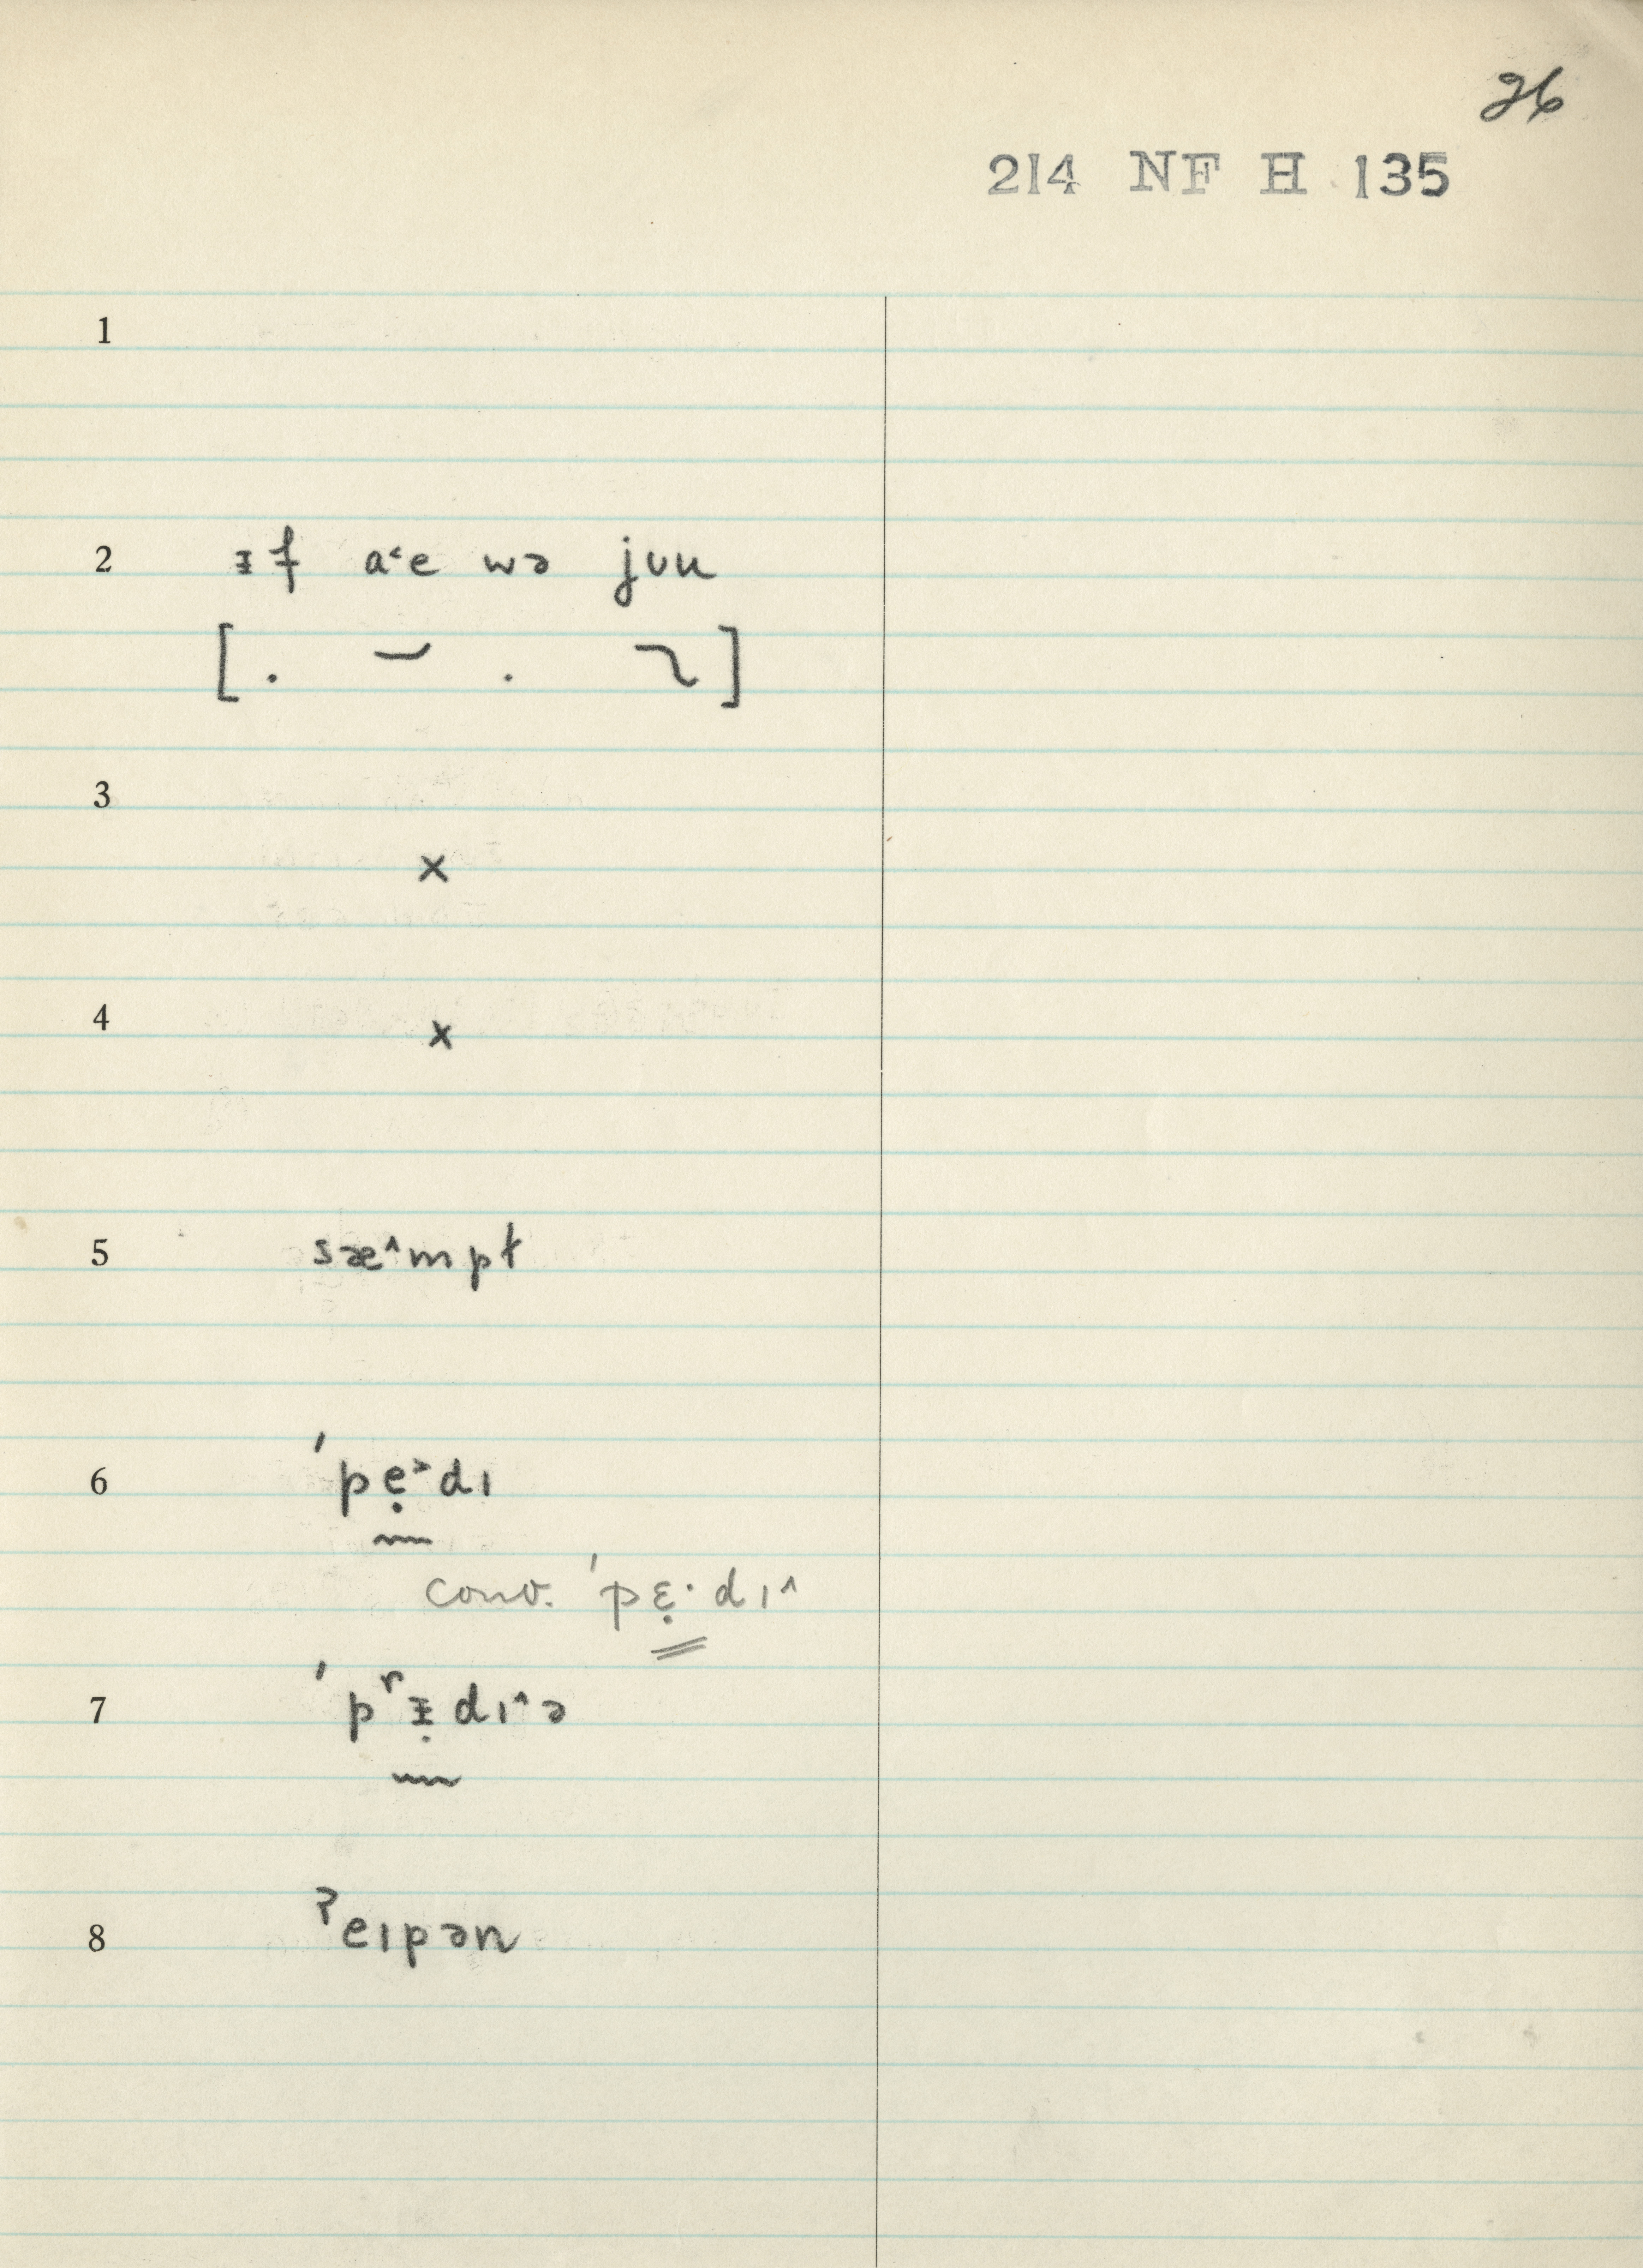 26
214 NF H 135
1
2 ᵻf a˂e wə jʊu
[. .]
3
×
4
×
5 sæ˄mpt
6 ˈpẹ˃dɪ
conv. ˈpɛ̣·dɪ˄
7 ˈpʳᵻ̣dɪ˄ə
8 ˀeɪpən